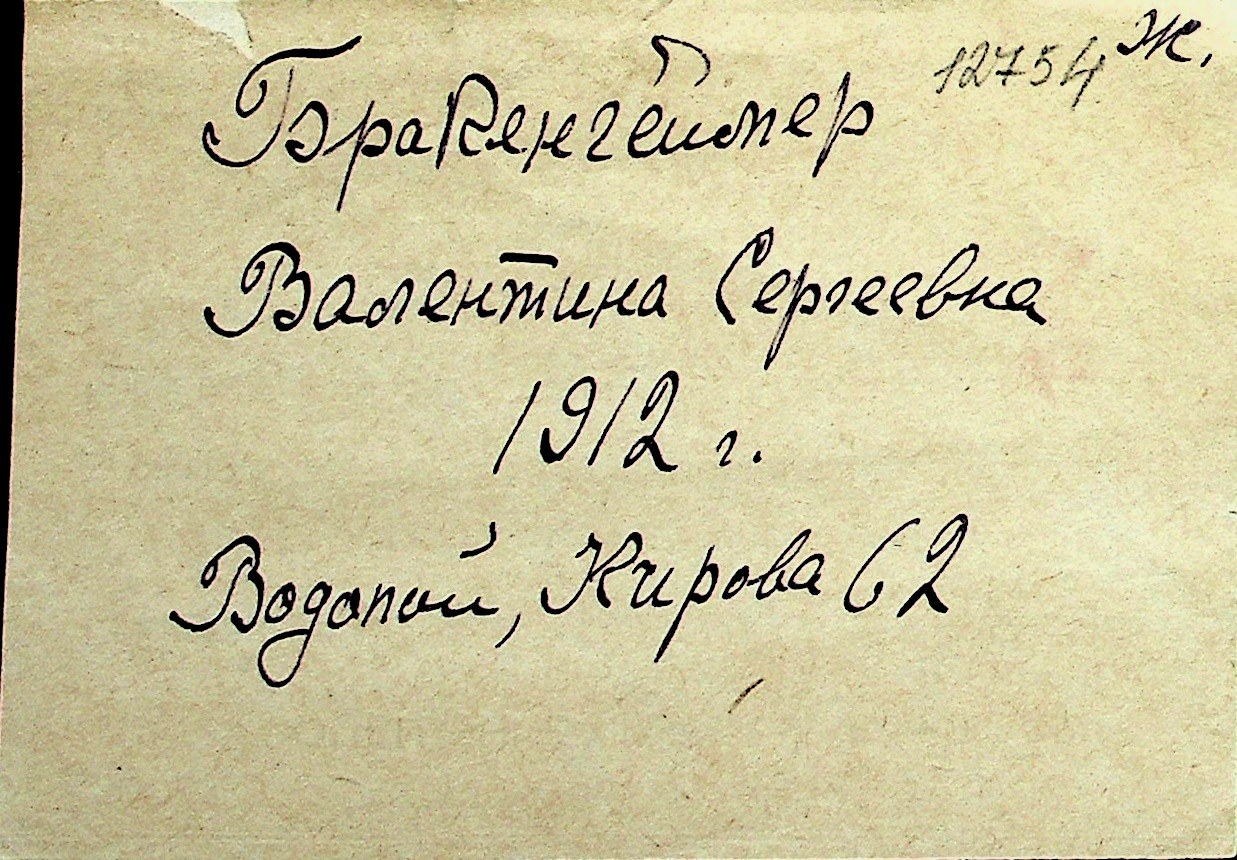 12754 Ж.
Бракенгеймер
Валентина Сергеевна
1912 г.
Водопой, Кирова 62